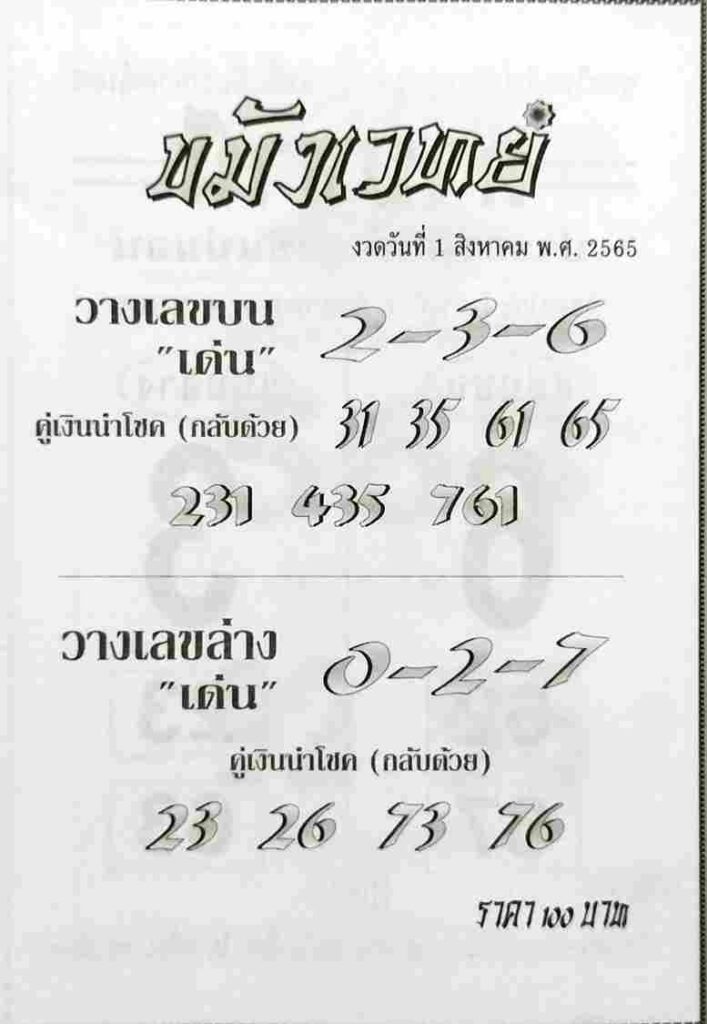 ขมังเวทย์
งวดวันที่ 1 สิงหาคม พ.ศ. 2565
วางเลขบน 2-3-6
"เด่น"
คู่เงินนำโชค (กลับด้วย) 31 35 61 65
231 435 761
วางเลขล่าง 0-2-7
"เด่น"
คู่เงินนำโชค (กลับด้วย)
23 26 73 76
ราคา 100 บาท